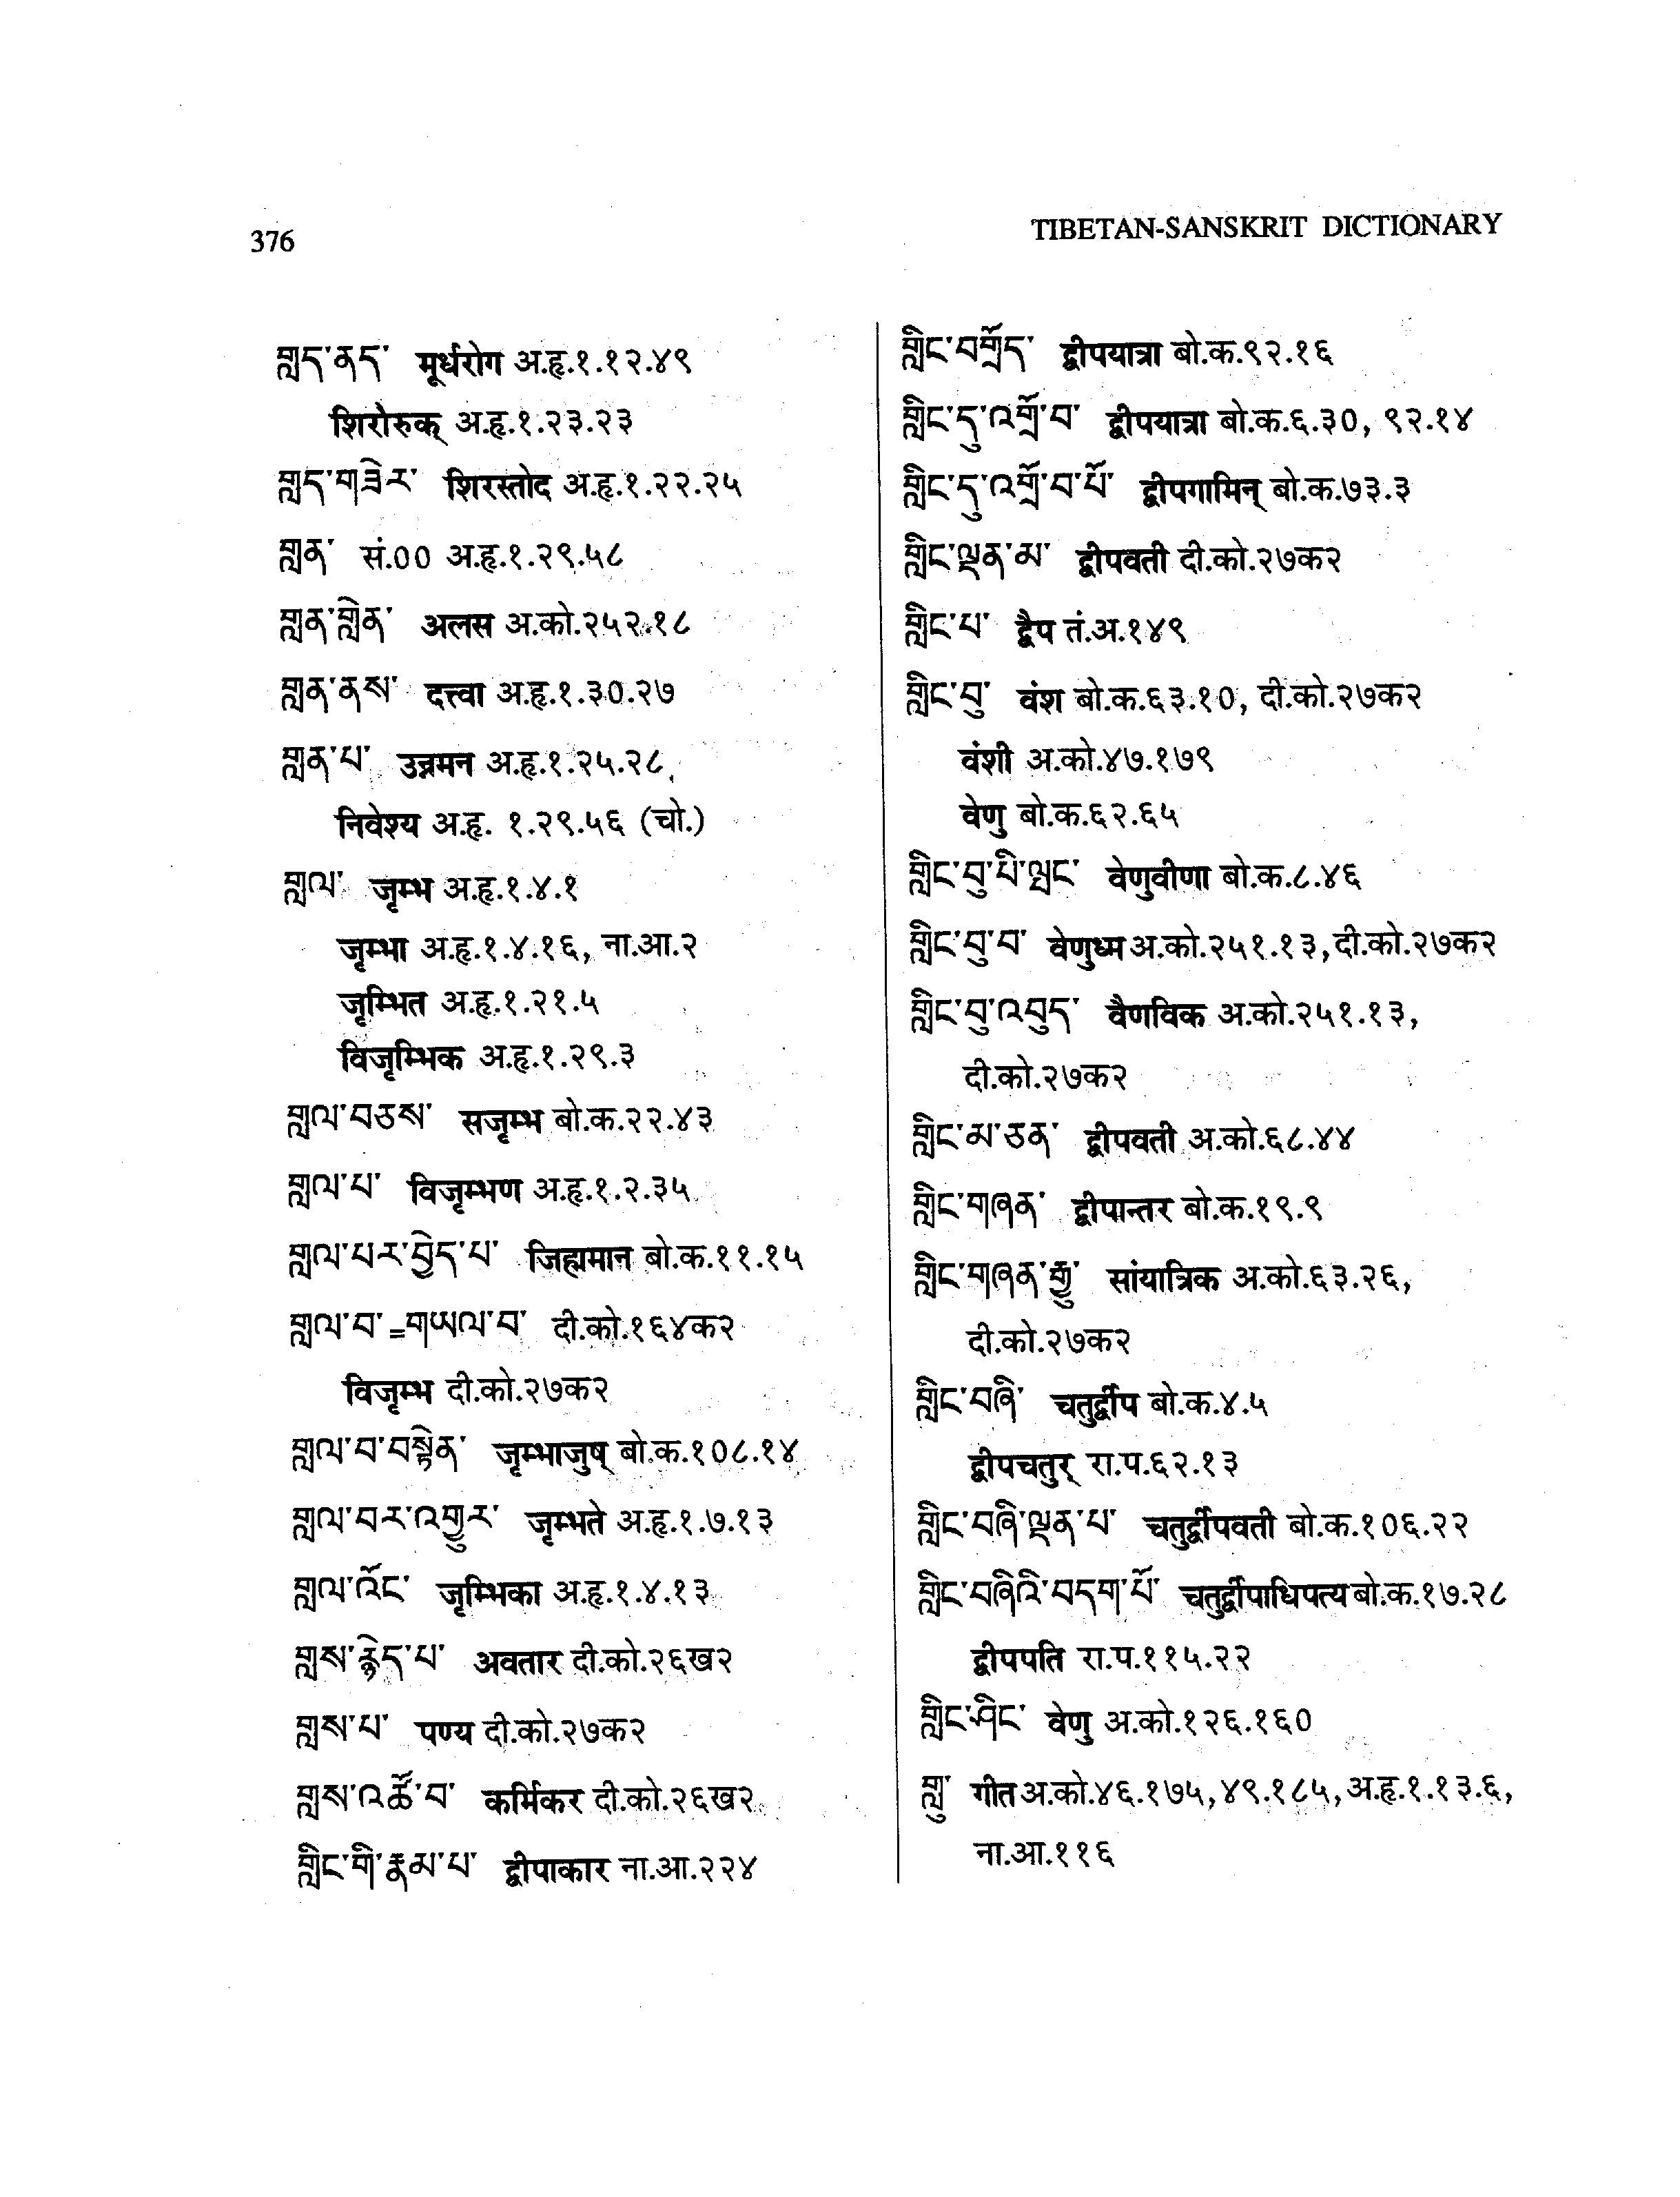 376
TIBETAN-SANSKRIT DICTIONARY
གླད་ནད་ मूर्धरोग अ.हृ.१.१२.४९
शिरोरुक् अ.हृ.१.२३.२३
གླད་གཟེར་ शिरस्तोद अ.हृ.१.२२.२५
གླན་ सं.00 अ.हृ.१.२९.५८
གླན་གླེན་ अलस अ.को.२५२.१८
གླན་ནས་ दत्त्वा अ.हृ.१.३०.२७
གླན་པ་ उन्नमन अ.हृ.१.२५.२८,
निवेश्य अ.हृ. १.२९.५६ (चो.)
གླལ་ जृम्भ अ.हृ.१.४.१
जृम्भा अ.हृ.१.४.१६, ना.आ.२
जृम्भित अ.हृ.१.२१.५
विजृम्भिक अ.हृ.१.२९.३
གླལ་བཅས་ सजृम्भ बो.क.२२.४३
གླལ་པ་ विजृम्भण अ.हृ.१.२.३५
གླལ་པར་བྱེད་པ་ जिह्ममान बो.क.११.१५
གླལ་བ་=གཡལ་བ་ दी.को.१६४क२
विजृम्भ दी.को.२७क२
གླལ་བ་བསྟེན་ जृम्भाजुष् बो.क.१०८.१४
གླལ་བར་འགྱུར་ जृम्भते अ.हृ.१.७.१३
གླལ་འོང་ जृम्भिका अ.हृ.१.४.१३
གླས་རྙེད་པ་ अवतार दी.को.२६ख२
གླས་པ་ पण्य दी.को.२७क२
གླས་འཚོ་བ་ कर्मिकर दी.को.२६ख२
གླིང་གི་རྣམ་པ་ द्वीपाकार ना.आ.२२४
གླིང་བགྲོད་ द्वीपयात्रा बो.क.९२.१६
གླིང་དུ་འགྲོ་བ་ द्वीपयात्रा बो.क.६.३०, ९२.१४
གླིང་དུ་འགྲོ་བ་པོ་ द्वीपगामिन् बो.क.७३.३
གླིང་ལྡན་མ་ द्वीपवती दी.को.२७क२
གླིང་པ་ द्वैप तं.अ.१४९
གླིང་བུ་ वंश बो.क.६३.१०, दी.को.२७क२
वंशी अ.को.४७.१७९
वेणु बो.क.६२.६५
གླིང་བུ་པི་ཝང་ वेणुवीणा बो.क.८.४६
གླིང་བུ་བ་ वेणुध्म अ.को.२५१.१३,दी.को.२७क२
གླིང་བུ་འབུད་ वैणविक अ.को.२५१.१३,
दी.को.२७क२
གླིང་མ་ཅན་ द्वीपवती अ.को.६८.४४
གླིང་གཞན་ द्वीपान्तर बो.क.१९.९
གླིང་གཞན་རྒྱུ་ सांयात्रिक अ.को.६३.२६,
दी.को.२७क२
གླིང་བཞི་ चतुर्द्वीप बो.क.४.५
द्वीपचतुर् रा.प.६२.१३
གླིང་བཞི་ལྡན་པ་ चतुर्द्वीपवती बो.क.१०६.२२
གླིང་བཞིའི་བདག་པོ་ चतुर्द्वीपाधिपत्य बो.क.१७.२८
द्वीपपति रा.प.११५.२२
གླིང་ཤིང་ वेणु अ.को.१२६.१६०
གླུ་ गीत अ.को.४६.१७५,४९.१८५,अ.हृ.१.१३.६,
ना.आ.११६